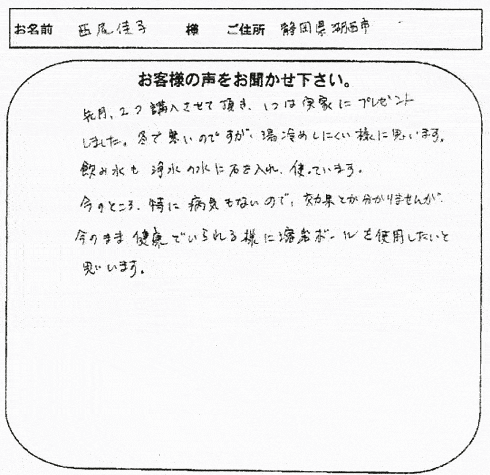 お名前 西尾佳子 様 ご住所 静岡県湖西市
お客様の声をお聞かせ下さい。
先月、2つ購入させて頂き、1つは実家にプレゼント
しました。冬で寒いのですが、湯冷めしにくい様に思います。
飲み水も浄水の水に石を入れ、使っています。
今のところ、特に病気もないので、効果とか分かりませんが、
今のまま健康でいられる様に溶岩ボールを使用したいと
思います。